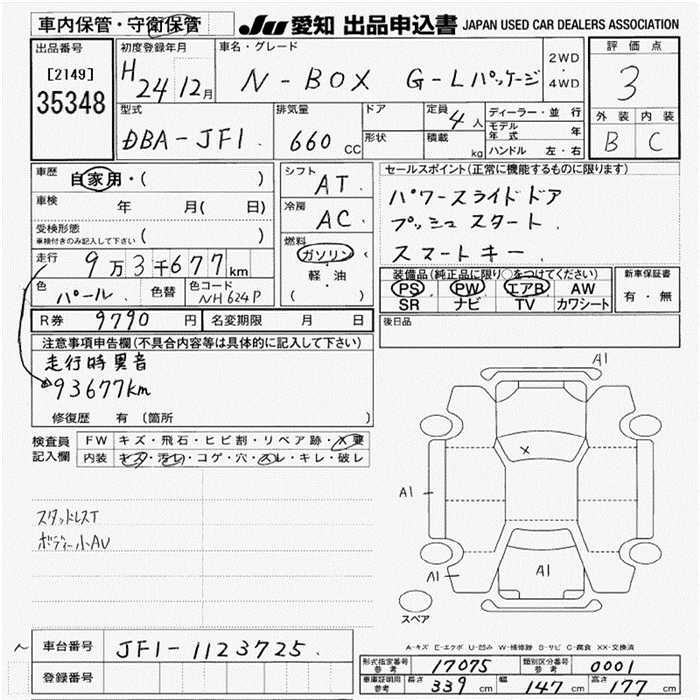 車内保管・守衛保管
JU 愛知 出品申込書 JAPAN USED CAR DEALERS ASSOCIATION
出品番号
[2149]
35348
初度登録年月
H 24 12月
車名・グレード
N-BOX G-Lパッケージ
2WD
・
4WD
評価点
3
型式
DBA-JF1.
排気量
660 CC
ドア
形状
定員 4 人
積載 kg
ディーラー・並行
モデル年式 年
ハンドル 左・右
外装 内装
B C
車歴 自家用・( )
車検 年 月( 日)
受検形態
車検付きのみ記入して下さい ( )
走行 9万3千677km
色 パール. 色替 色コード NH624P
シフト AT.
冷房 AC.
燃料
ガソリン
軽・油
( )
セールスポイント(正常に機能するものに限ります)
パワースライドドア
プッシュスタート.
スマートキー.
装備品(純正品に限り○をつけてください)
PS PW エアB AW
SR ナビ TV カワシート
新車保証書
有・無
R券 9790 円 名変期限 月 日
後日品
注意事項申告欄(不具合内容等は具体的に記入して下さい)
走行時異音
93677km
修復歴 有(箇所 )
検査員記入欄
FW キズ・飛石・ヒビ割・リペア跡・X要
内装 キズ・汚レ・コゲ・穴・スレ・キレ・破レ
スタッドレスT
ボディー小AU
A1
X
A1
A1
A1
スペア
A-キズ E-エクボ U-凹み W-補修跡 S-サビ C-腐食 XX-交換済
車台番号 JF1-1123725.
登録番号
形式指定番号 参考 17075 類別区分番号 参考 0001
車庫証明用 参考 長さ 339 cm 幅 147 cm 高さ 177 cm